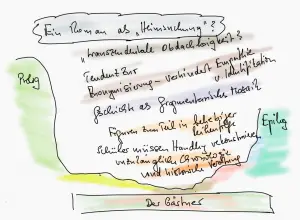 Ein Roman als „Heimsuchung“?
„transzendentale Obdachlosigkeit“?
Prolog
Tendenz zur
Anonymisierung – verhindert Empathie
u. Identifikation
Geschichte als fragmentarisches Mosaik
Figuren zum Teil in beliebiger
Reihenfolge
Epilog
Schüler müssen Handlung rekonstruieren
unzulängliche Chronologie
und historische Verortung
Der Gärtner